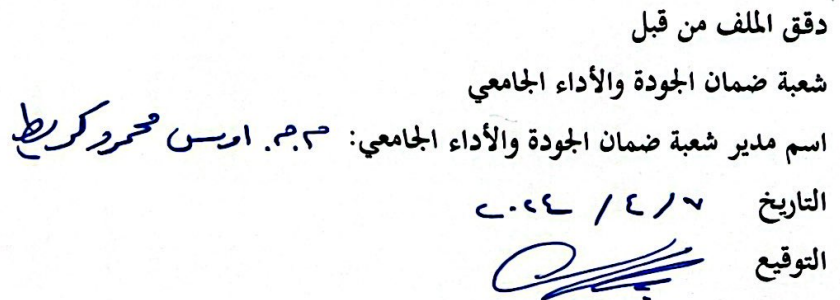 دقق الملف من قبل
شعبة ضمان الجودة والأداء الجامعي
اسم مدير شعبة ضمان الجودة والأداء الجامعي: م.م. اوس محمود
التاريخ ٧ / ٤ / ٢٠٢٤
التوقيع